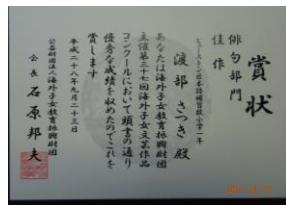 賞状
俳句部門
佳作
ヒューストン日本語補習校小学一年
渡部さつき殿
あなたは海外子女教育振興財団
主催第三十七回海外子女文芸作品
コンクールにおいて頭書の通り
優秀な成績を収めたのでこれを
賞します
平成二十八年九月二十三日
公益財団法人海外子女教育振興財団
会長 石原邦夫